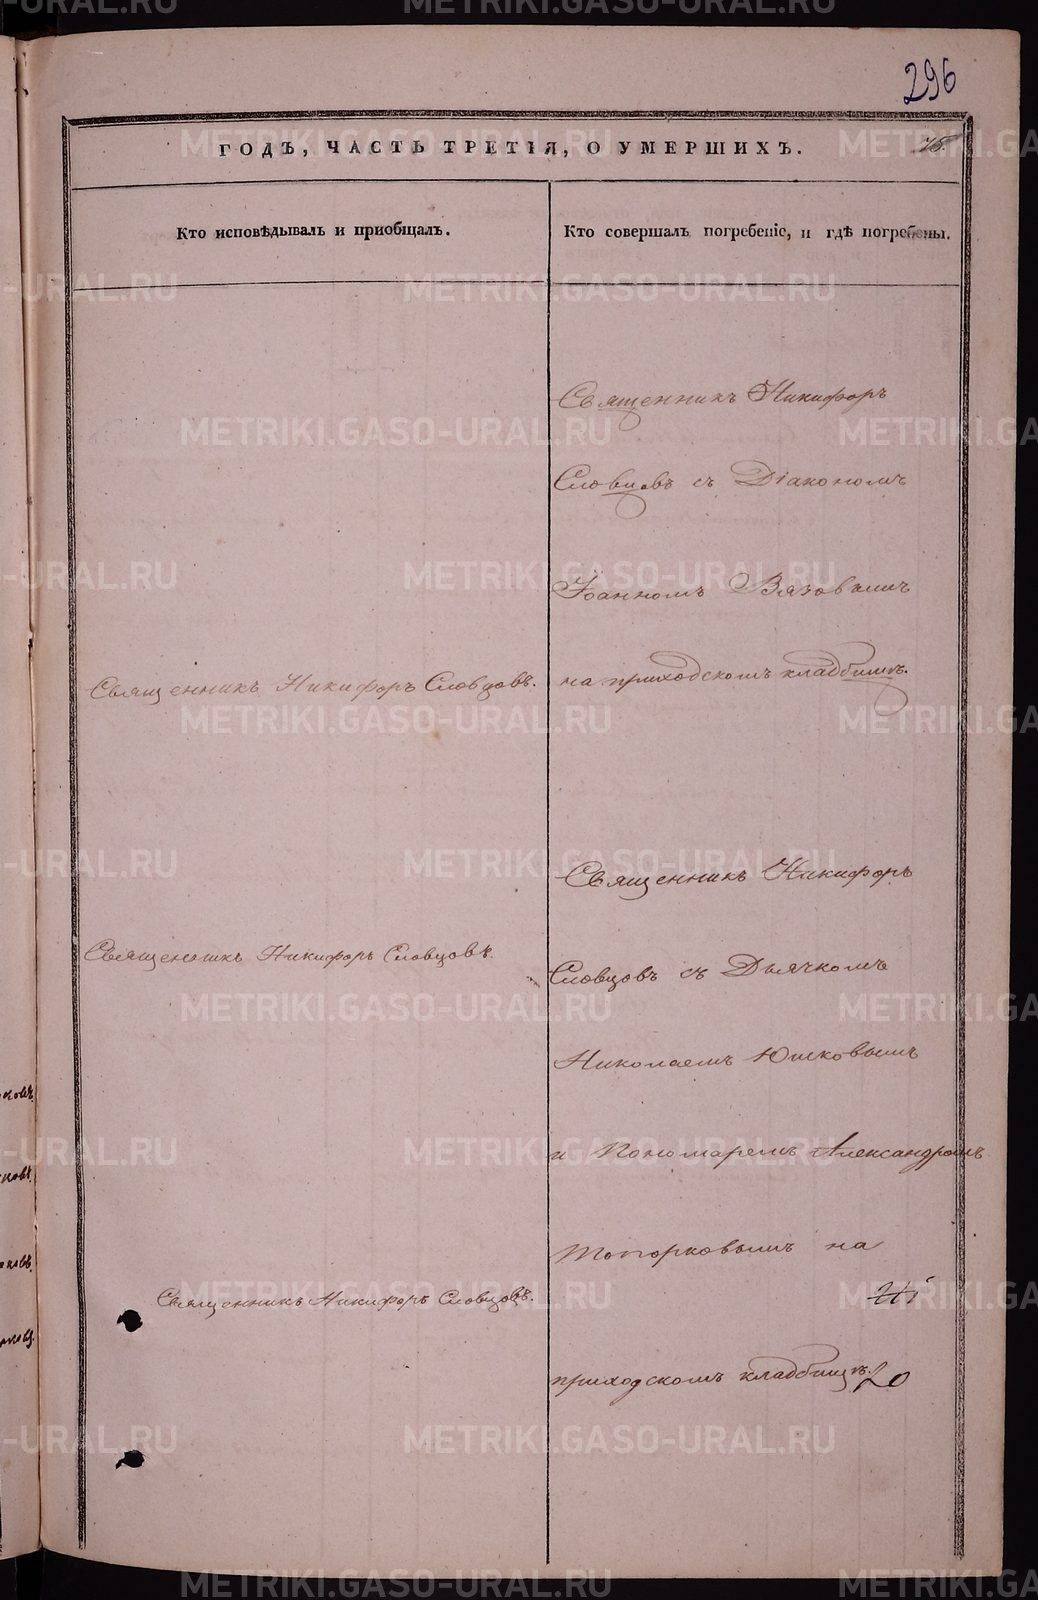 296
ГОДЪ, ЧАСТЬ ТРЕТІЯ, О УМЕРШИХЪ.
Кто исповѣдывалъ и пріобщалъ.
Кто совершалъ погребеніе, и гдѣ погребены.
Священникъ Никифоръ
Словцовъ съ Діакономъ
Іоанномъ Вязовымъ
Священникъ Никифоръ Словцовъ.
на приходскомъ кладбищѣ.
Священникъ Никифоръ
Священникъ Никифоръ Словцовъ.
Словцовъ съ Дьячкомъ
Николаемъ Юшковымъ
и Пономаремъ Александромъ
Топорковымъ на
Священникъ Никифоръ Словцовъ.
приходскомъ кладбищѣ.
20
METRIKI.GASO-URAL.RU